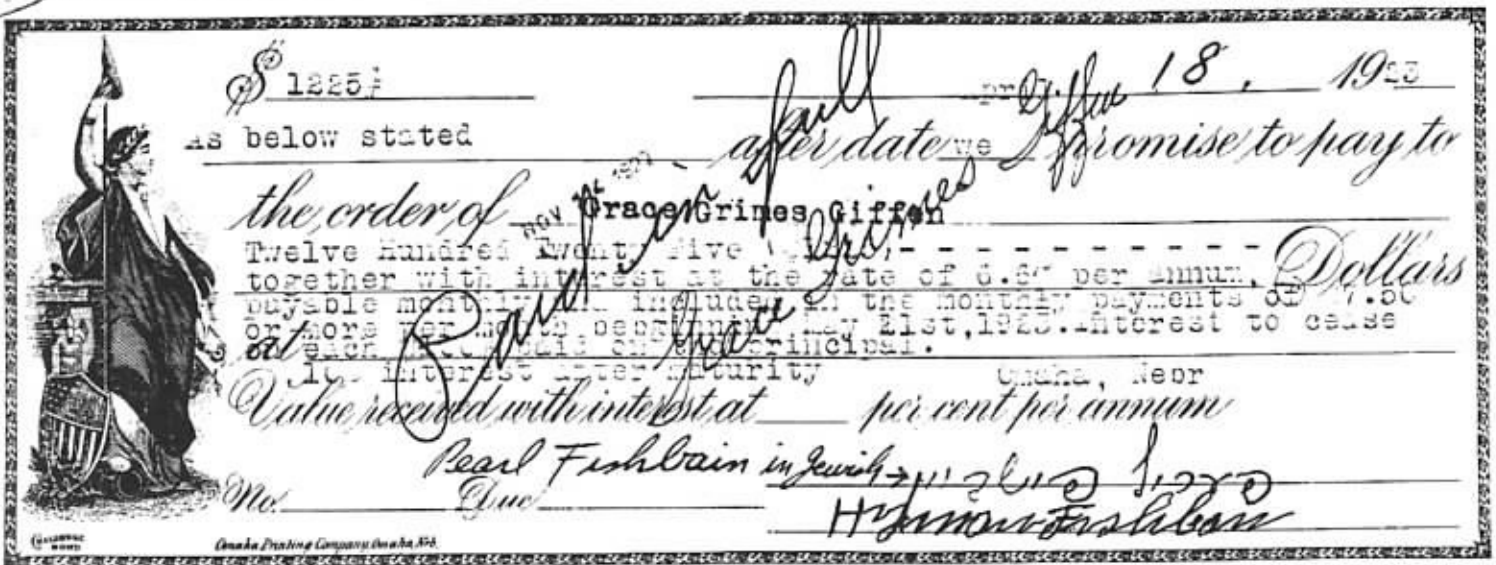 $ 1225 18, 1923
As below stated after date we promise to pay to
the order of Grace Grimes Giffen
Twelve Hundred Twenty Five - - - - - - - - - - - Dollars
together with interest at the rate of 6.6% per annum,
payable monthly and included in the monthly payments of 17.50
or more per month beginning May 21st, 1923. Interest to cease
at each paid on principal.
10% interest after maturity Omaha, Nebr
Value received with interest at per cent per annum
Paid in full
Grace Grimes Giffen
Pearl Fishbain in Jewish → פערל פישביין
No. Due
Hyman Fishbain
Omaha Printing Company Omaha, Neb.